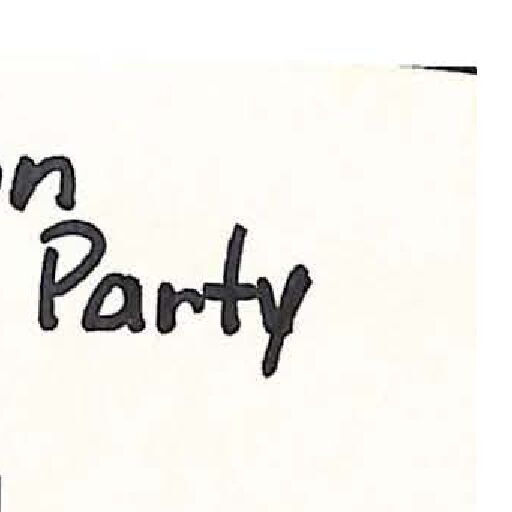 n
Party